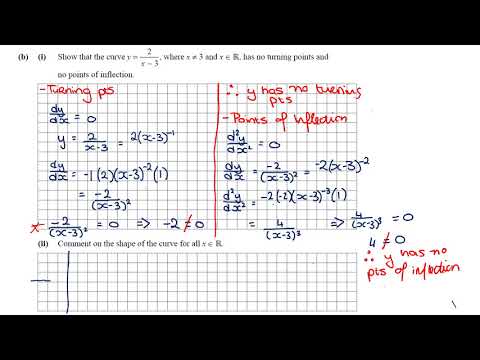 (b) (i) Show that the curve y = 2/(x − 3), where x ≠ 3 and x ∈ ℝ, has no turning points and
no points of inflection.
- Turning pts
dy/dx = 0
y = 2/(x-3) = 2(x-3)⁻¹
dy/dx = -1(2)(x-3)⁻²(1)
= -2/(x-3)²
* -2/(x-3)² = 0 => -2 ≠ 0
∴ y has no turning
pts
- Points of Inflection
d²y/dx² = 0
dy/dx = -2/(x-3)² = -2(x-3)⁻²
d²y/dx² = -2(-2)(x-3)⁻³(1)
= 4/(x-3)³ => 4/(x-3)³ = 0
4 ≠ 0
∴ y has no
pts of inflection
(ii) Comment on the shape of the curve for all x ∈ ℝ.